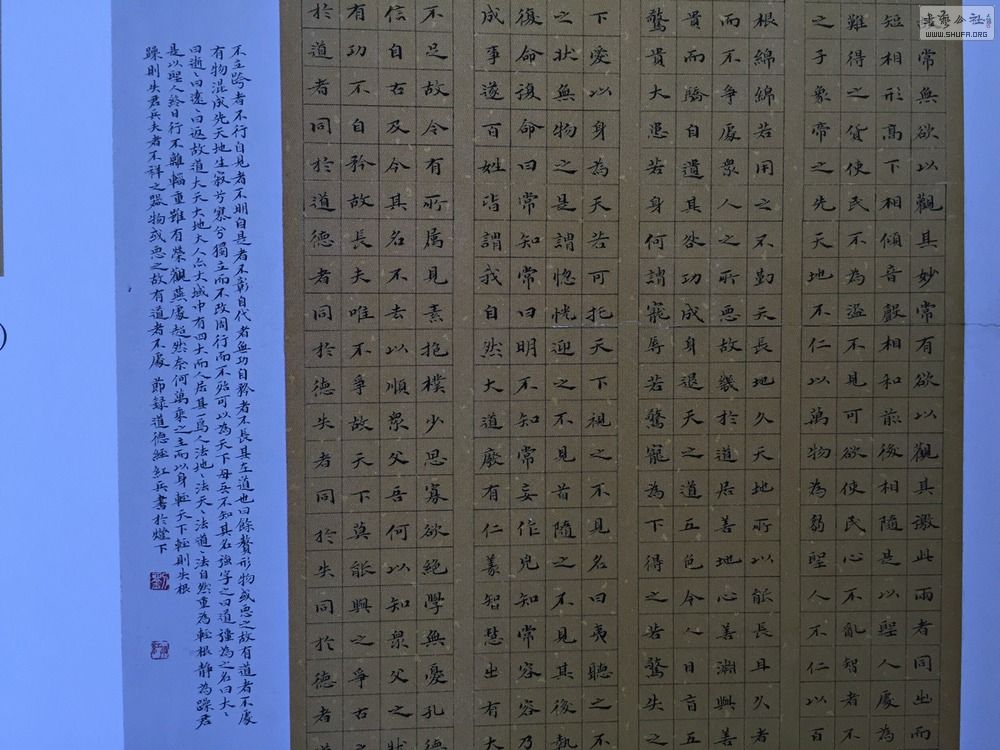 常無欲以觀其妙常有欲以觀其徼此兩者同出而
短相形高下相傾音聲相和前後相隨是以聖人處為
難得之貨使民不為盜不見可欲使民心不亂智者不
之子象帝之先天地不仁以萬物為芻聖人不仁以百
根綿綿若用之不勤天長地久天地所以能長且久者
而不爭處眾人之所惡故幾於道居善地心善淵與善
貴而驕自遺其咎功成身退天之道五色令人目盲五
驚貴大患若身何謂寵辱若驚寵為下得之若驚失之
下愛以身為天若可托天下視之不見名曰夷聽之不
之狀無物之是謂惚恍迎之不見首隨之不見其後執
復命復命曰常知常曰明不知常妄作凶知常容容乃
成事遂百姓皆謂我自然大道廢有仁義智慧出有大
不足故令有所屬見素抱樸少思寡欲絕學無憂孔德
信自古及今其名不去以順眾父吾何以知眾父之狀
有功不自矜故長夫唯不爭故天下莫能與之爭古
於道者同於道德者同於德失者同於失同於德者道
不立跨者不行自見者不明自是者不彰自代者無功自矜者不長其在道也曰餘贅形物或惡之故有道者不處
有物混成先天地生寂兮寥兮獨立而不改周行而不殆可以為天下母吾不知其名強字之曰道強為之名曰大、
曰逝、曰遠、曰返故道大天大地大人亦大域中有四大而人居其一焉人法地、法天、法道、法自然重為輕根靜為躁君
是以聖人終日行不離輜重雖有榮觀燕處超然奈何萬乘之主而以身輕天下輕則失根
躁則失君兵夫者不祥之器物或惡之故有道者不處 節録道德經紅兵書於燈下
書藝公社
WWW.SHUFA.ORG